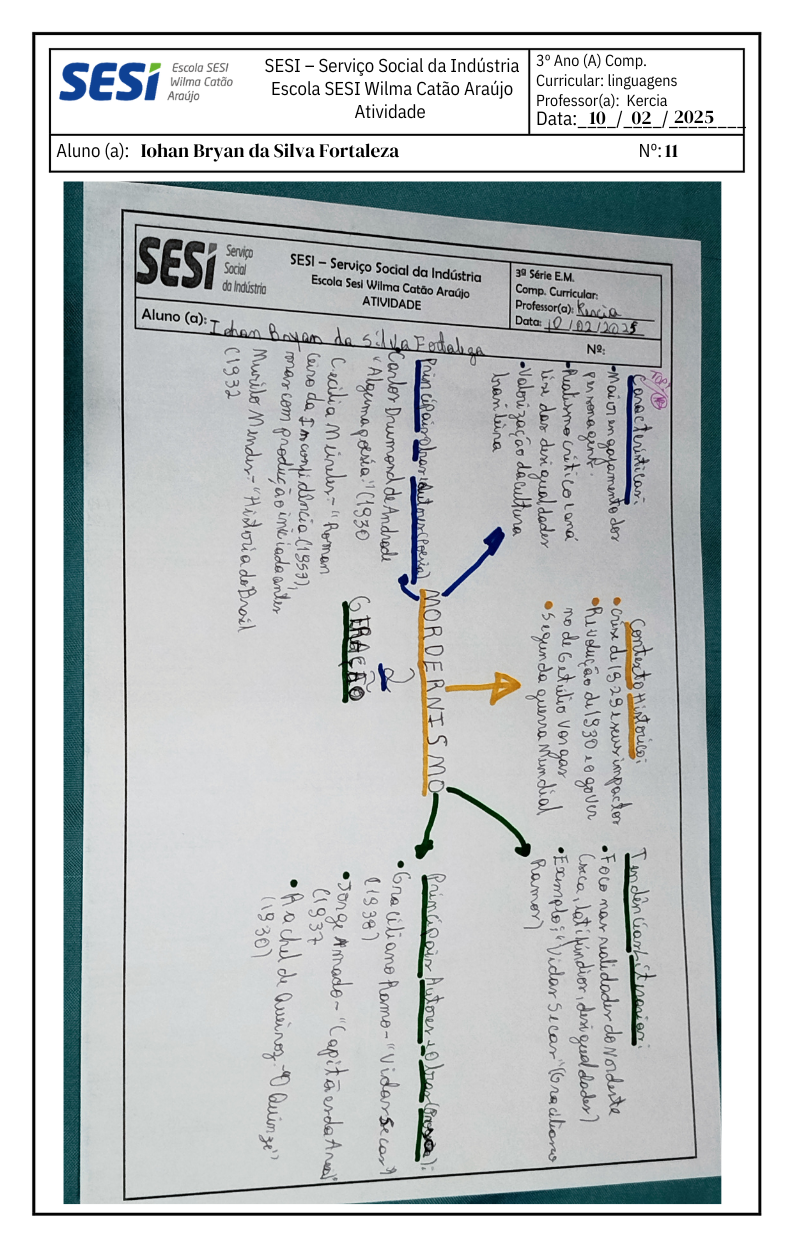 SESI
Escola SESI
Wilma Catão
Araújo
SESI – Serviço Social da Indústria
Escola SESI Wilma Catão Araújo
Atividade
3º Ano (A) Comp.
Curricular: linguagens
Professor(a): Kercia
Data: 10 / 02 / 2025
Aluno (a): Iohan Bryan da Silva Fortaleza
Nº: 11
SESI
Serviço
Social
da Indústria
SESI – Serviço Social da Indústria
Escola Sesi Wilma Catão Araújo
ATIVIDADE
3ª Série E.M.
Comp. Curricular:
Professor(a): Kercia
Data: 10/02/2025
Aluno (a): Iohan Bryan da Silva Fortaleza
Nº:
Características:
• Maior engajamento dos
personagens.
• Realismo crítico e aná
lise das desigualdades
• Valorização da cultura
brasileira
Contexto Historico:
• Crise de 1929 e seus impactos
• Revolução de 1930 e o gover
no de Getulio Vargas
• Segunda guerra Mundial
Tendências Literarias:
• Foco nas realidades do Nordeste
(seca, latifundios, desigualdades)
• Exemplo: "Vidas Secas" (Graciliano
Ramos)
MORDERNISMO
2
GERAÇÃO
Principais Autores (Poesia)
Carlos Drumond de Andrade
"Alguma poesia" (1930
Cecilia Meireles - "Roman
ceiro da Inconfidência (1953),
mas com produção iniciada antes
Murilo Mendes - "Historia do Brasil
(1932
Principais Autores e Obras (Prosa):
• Graciliano Ramo - "Vidas Secas"
(1938)
• Jorge Amado - "Capitães da Areia"
(1937
• Rachel de Queiroz - "O Quinze"
(1930)